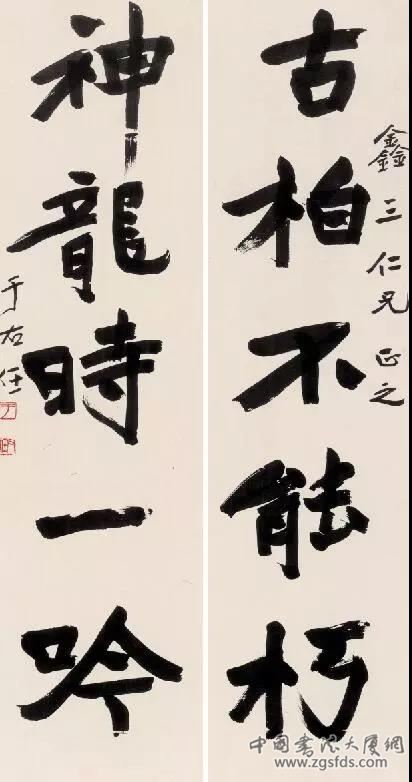 古柏不能朽
鑫三仁兄正之
神龍時一吟
于右任
中国书法大厦网
www.zgsfds.com